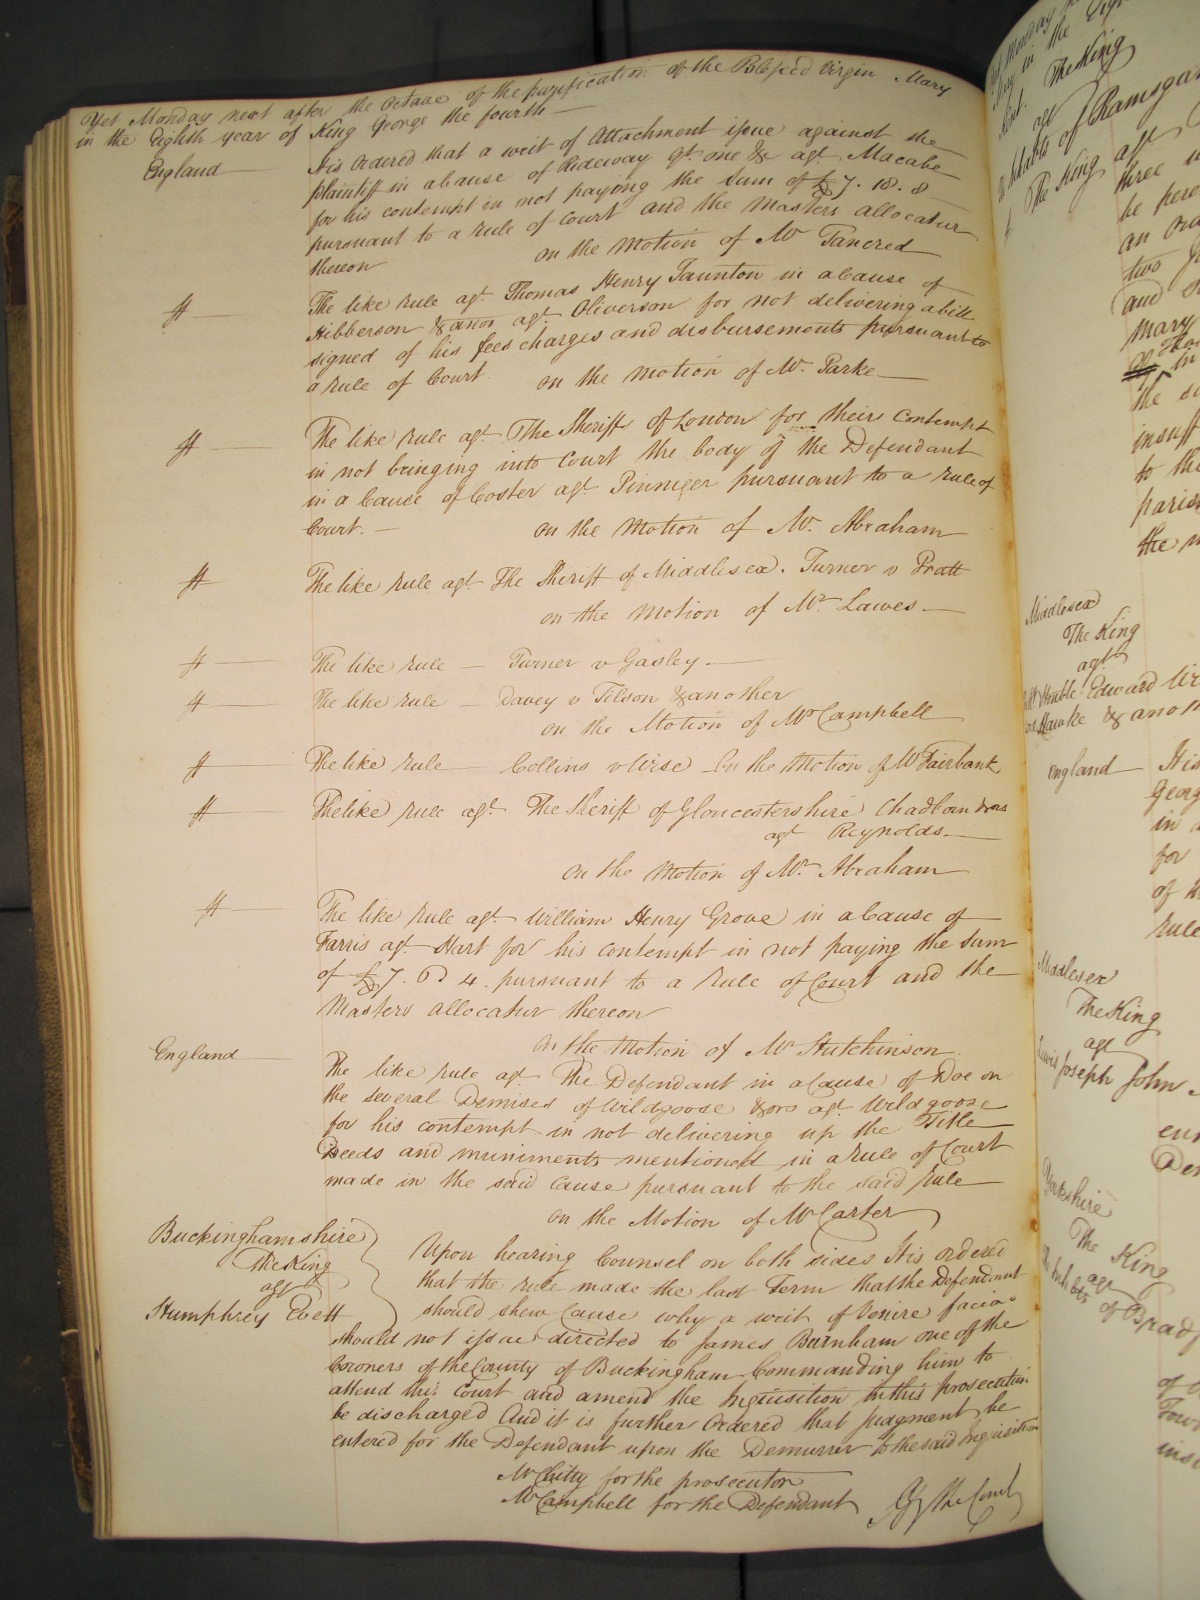 Yet Monday next after the Octave of the purification of the Blessed Virgin Mary
in the Eighth year of King George the fourth
England
It is Ordered that a writ of Attachment issue against the
plaintiff in a Cause of Rideway gt. one &c agt. Macabe
for his contempt in not paying the sum of £7. 18. 8
pursuant to a rule of Court and the Masters allocatur
thereon on the Motion of Mr Tancred
The like rule agt. Thomas Henry Taunton in a Cause of
Hibberson & anor agt. Oliverson for not delivering a bill
signed of his fees charges and disbursements pursuant to
a rule of Court on the Motion of Mr. Parke
The like rule agt. The Sheriffs of London for their Contempt
in not bringing into Court the body of the Defendant
in a Cause of Coster agt. Pinniger pursuant to a rule of
Court. on the Motion of Mr. Abraham
The like rule agt. The Sheriff of Middlesex. Turner v Pratt
on the Motion of Mr. Lawes
The like rule Turner v Gasley
The like rule Davey v Tilson & another
on the Motion of Mr Campbell
The like rule Collins v Wise On the Motion of Mr Fairbank
The like rule agt. The Sheriff of Gloucestershire Chadborn & ors
agt Reynolds
on the Motion of Mr. Abraham
The like rule agt. William Henry Grove in a Cause of
Farris agt. Hart for his contempt in not paying the sum
of £7. 4. pursuant to a rule of Court and the
Masters allocatur thereon
on the Motion of Mr Hutchinson
England
The like rule agt. The Defendant in a Cause of Doe on
the several Demises of Wildgoose & ors agt. Wildgoose
for his contempt in not delivering up the Title
Deeds and muniments mentioned in a rule of Court
made in the said cause pursuant to the said rule
on the Motion of Mr Carter
Buckinghamshire
The King
agt
Humphrey Evett
Upon hearing Counsel on both sides It is ordered
that the rule made the last Term that the Defendant
should shew Cause why a writ of Venire facias
should not issue directed to James Burnham one of the
Coroners of the County of Buckingham Commanding him to
attend this Court and amend the Inquisition in this prosecution
be discharged And it is further Ordered that judgment be
entered for the Defendant upon the Demurrer to the said Inquisition
Mr Chitty for the prosecutor
Mr Campbell for the Defendant By the Court
The King
agt
of Ramsgate
The King agt
three
be
an
two
and
Mary
in
the
insuff
to the
parish
the
Middlesex
The King
agt
Honble. Edward
Hawke & ano
England It is
Georg
in a
for
of
rule
Middlesex
The King
agt
Lewis Joseph John
Yorkshire
The King
agt
of Brad
of
Town